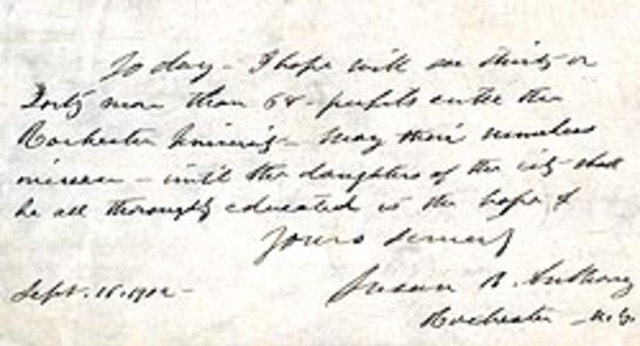 To day - I hope will see thirty or
forty more than 58 - pupils enter the
Rochester University - May their numbers
increase - until the daughters of the city shall
be all thoroughly educated is the hope of
Yours sincerely
Susan B. Anthony
Sept. 15, 1902 - Rochester - N.Y.